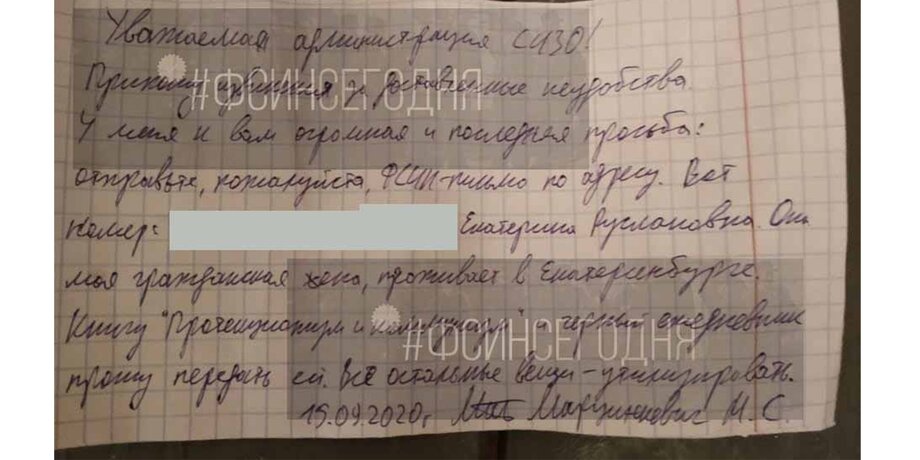 Уважаемая администрация СИЗО!
Приношу извинения за доставленные неудобства.
#ФСИНСЕГОДНЯ
У меня к вам огромная и последняя просьба:
отправьте, пожалуйста, ФСИН-письмо по адресу. Вот
номер: Екатерина Руслановна. Она
моя гражданская жена, проживает в Екатеринбурге.
Книгу "Протекционизм и коммунизм" и черный ежедневник
#ФСИНСЕГОДНЯ
прошу передать ей. Все остальные вещи - утилизировать.
15.09.2020г Марцинкевич М.С.